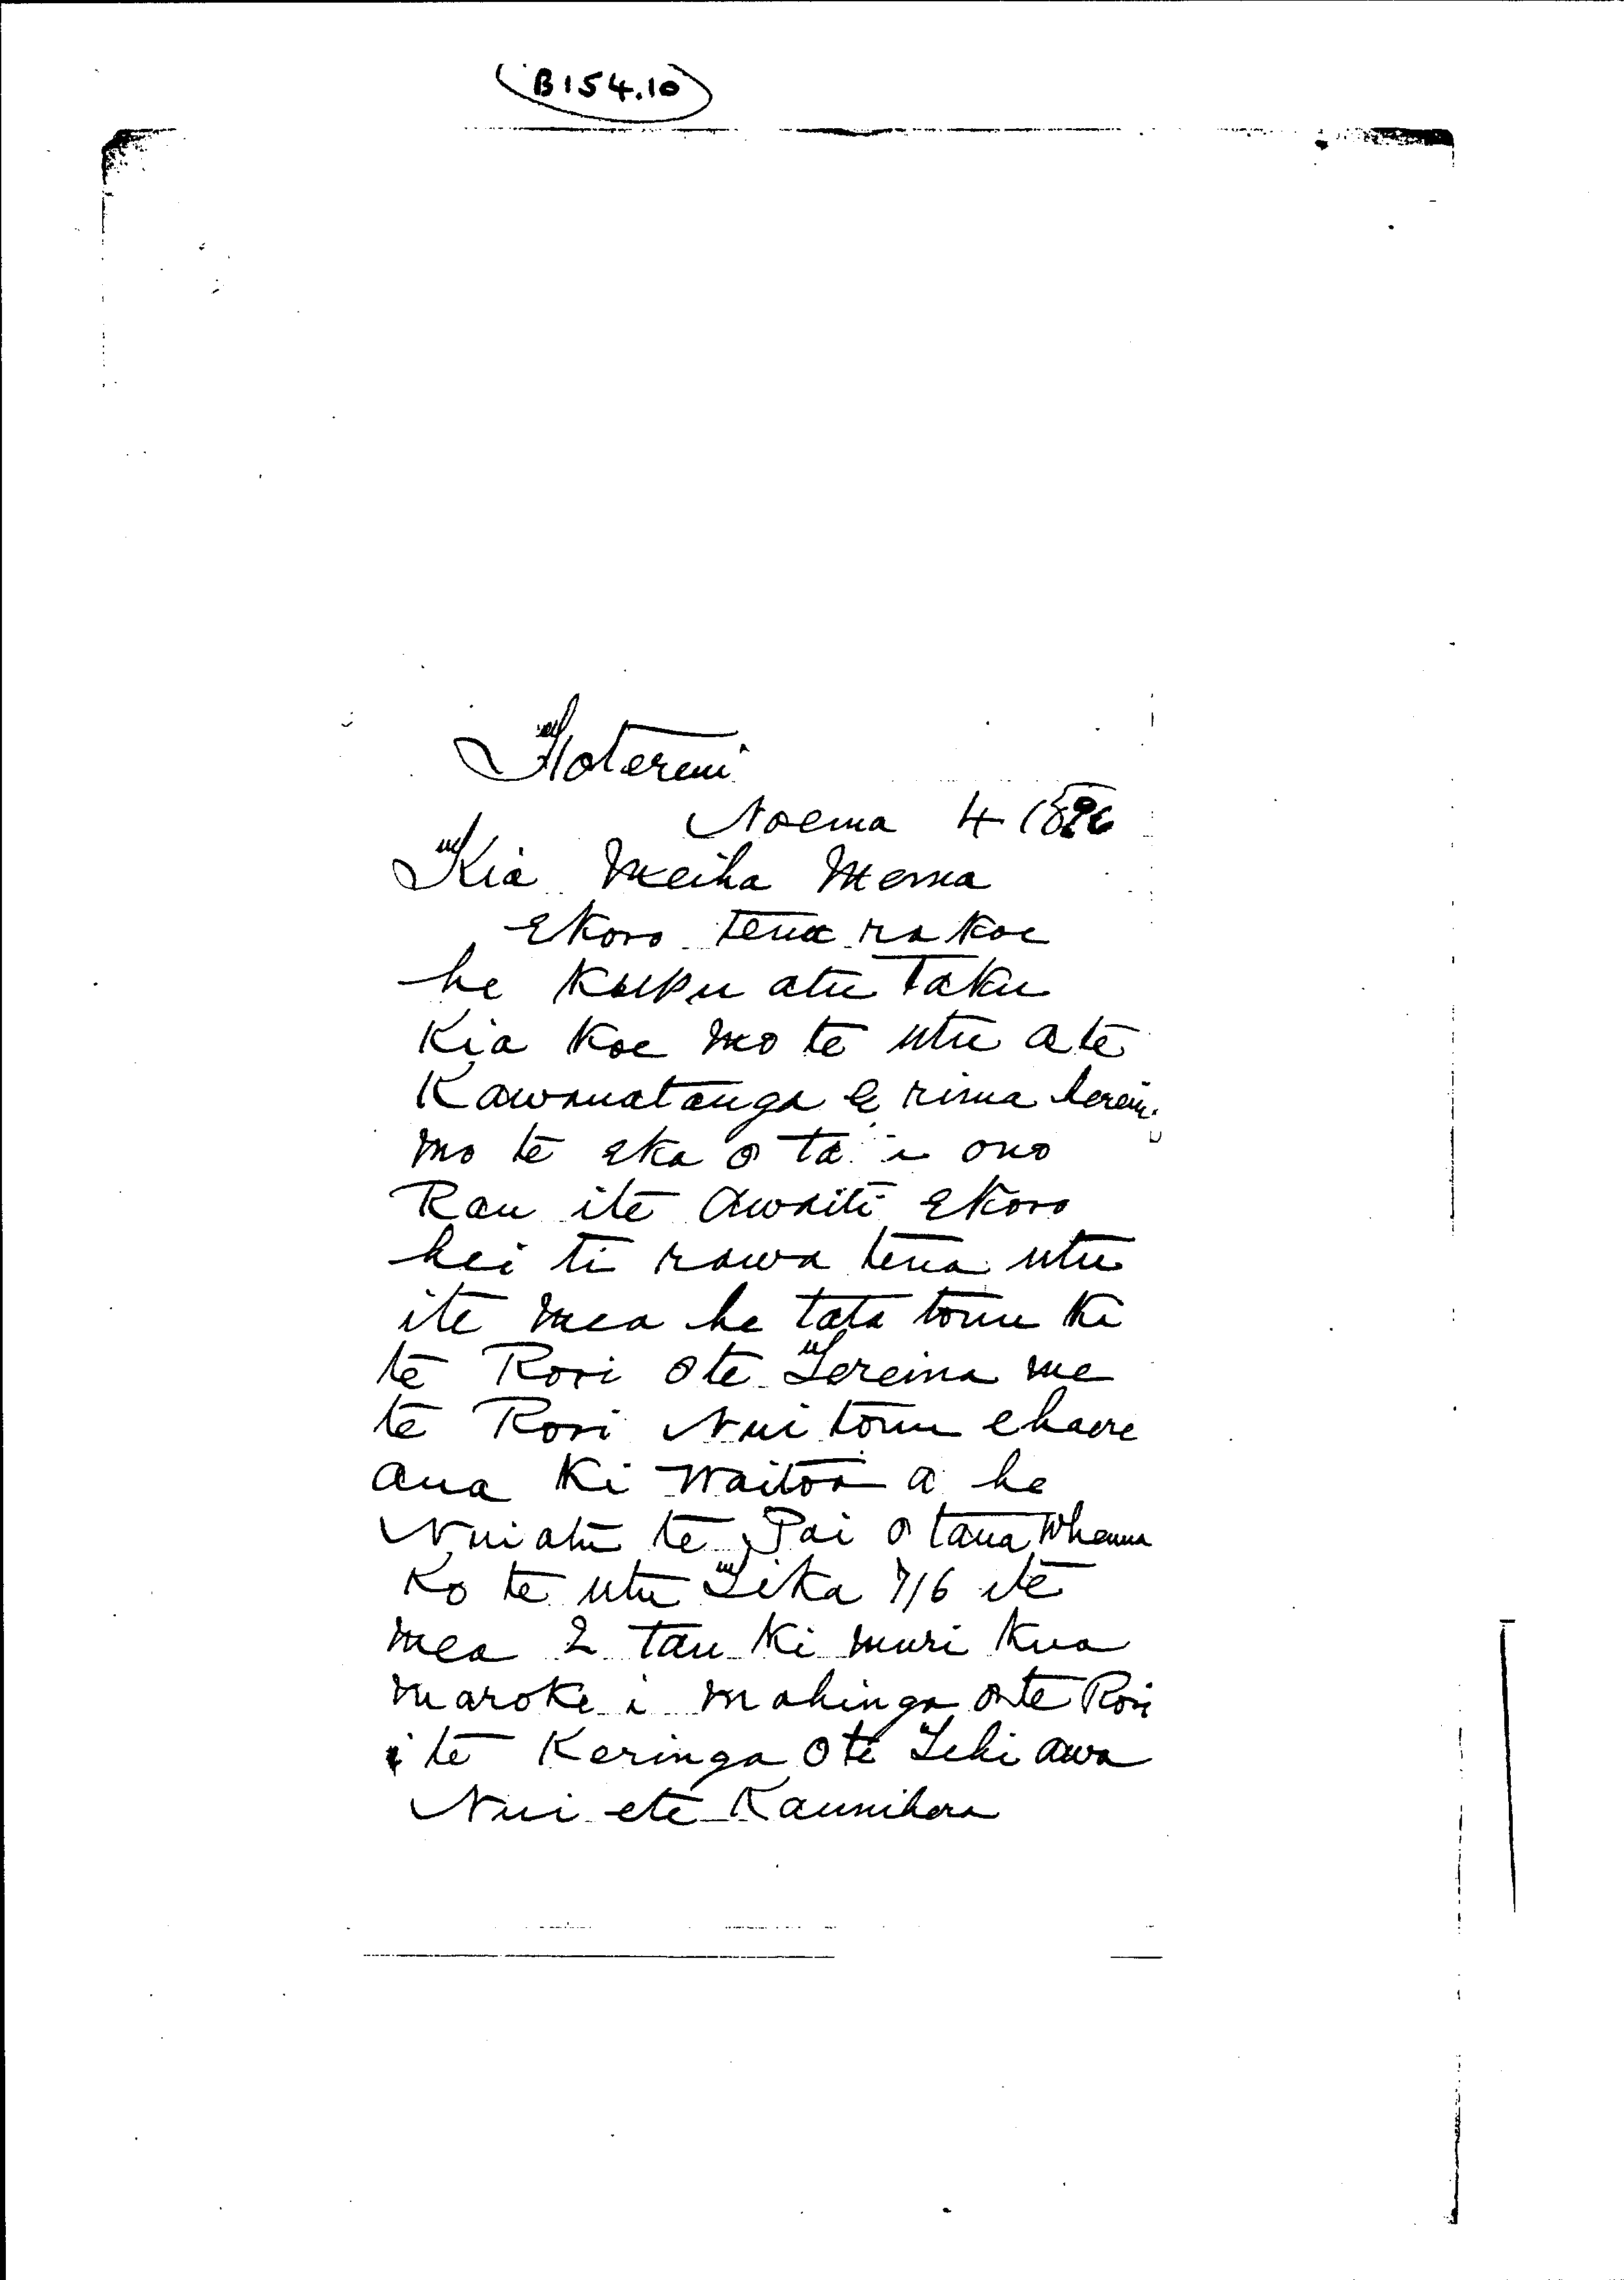 B154.10
Hotereni
Noema 4 1896
Kia Meiha Mema
Ekoro tena ra koe
he Kupu atu Taku
Kia Koe mo te utu a te
Kawanatanga e rima hereni
mo te eka o ta i ono
Rau ite Awaiti Ekoro
hei ti rawa tena utu
ite mea he tata tonu Ki
te Rori ote Tereina me
te Rori Nui tonu ehaere
ana Ki Waitoa a he
Nui atu te Pai o taua Whenua
Ko te utu Tika 7/6 ite
mea 2 tau Ki muri Kua
maroke i mahinga o te Rori
i te Keringa Ote Tehi awa
Nui ete Kaunihera